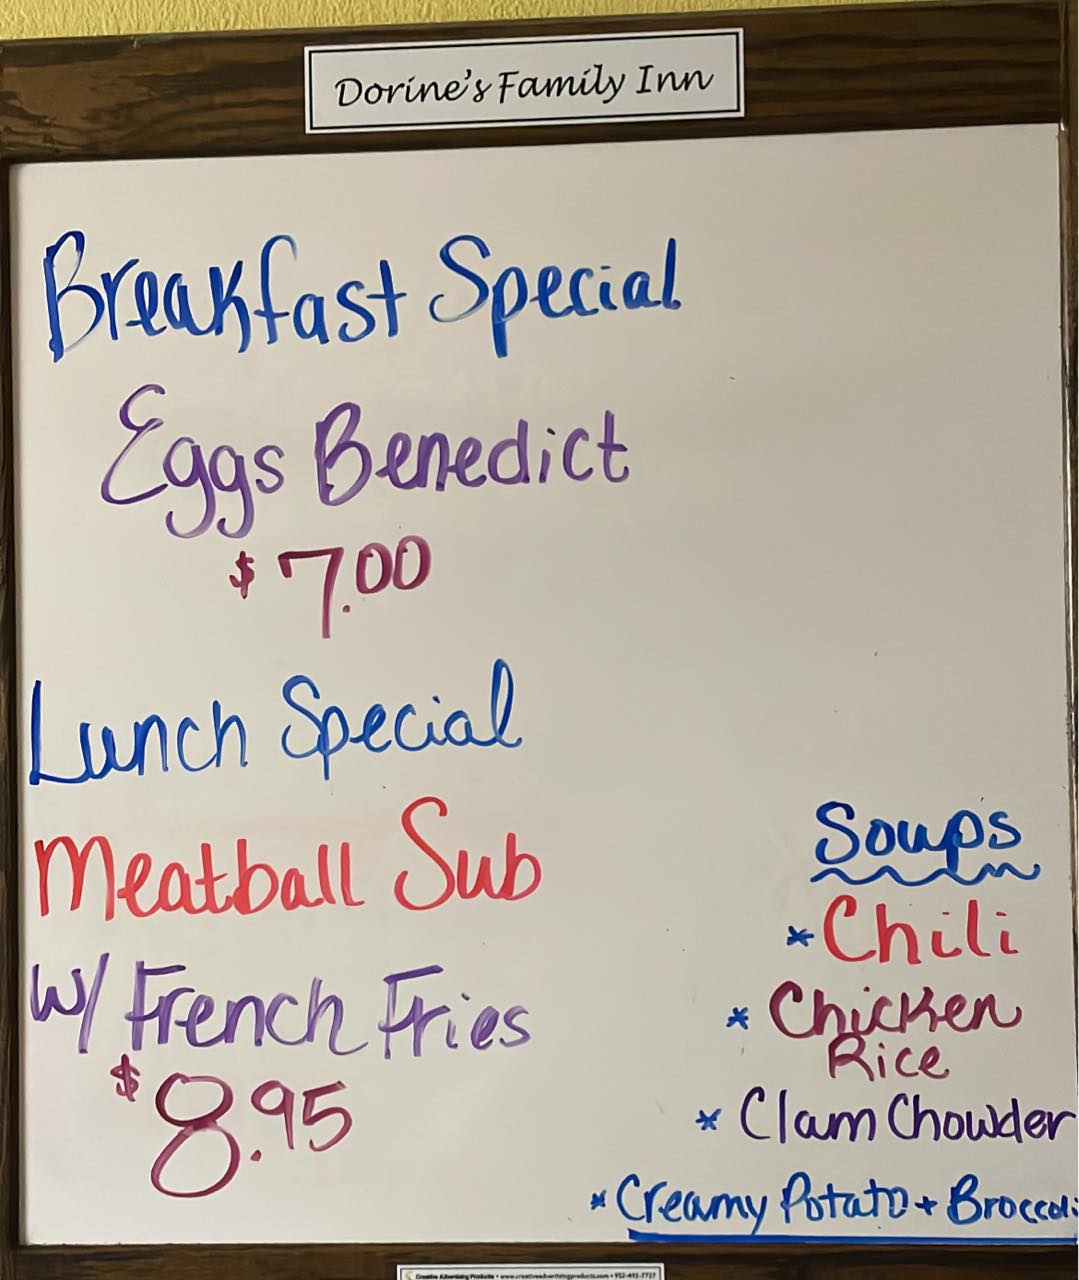 Dorine's Family Inn
Breakfast Special
Eggs Benedict
$7.00
Lunch Special
Meatball Sub
W/ French Fries
$8.95
Soups
* Chili
* Chicken
Rice
* Clam Chowder
* Creamy Potato + Broccoli
Creative Advertising Products • www.creativeadvertisingproducts.com • 952-492-7727